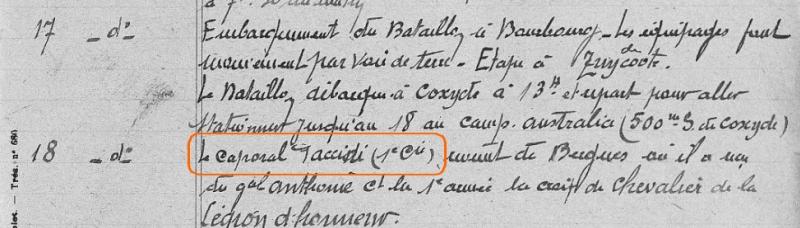 à 7h 30 du matin
17 _ do Embarquement du Bataillon à Bourbourg _ Les équipages font
mouvement par voie de terre _ Etape à Zuydcoote.
Le Bataillon débarque à Coxyde à 13h et repart pour aller
stationner jusqu'au 18 au camp. australia (500m S. de Coxyde)
18 _ do Le Caporal (1e Cie) revient de Bergues où il a reçu
du gal anthoine Ct la 1e armée la croix de Chevalier de la
Légion d'honneur.
Trés. no 680